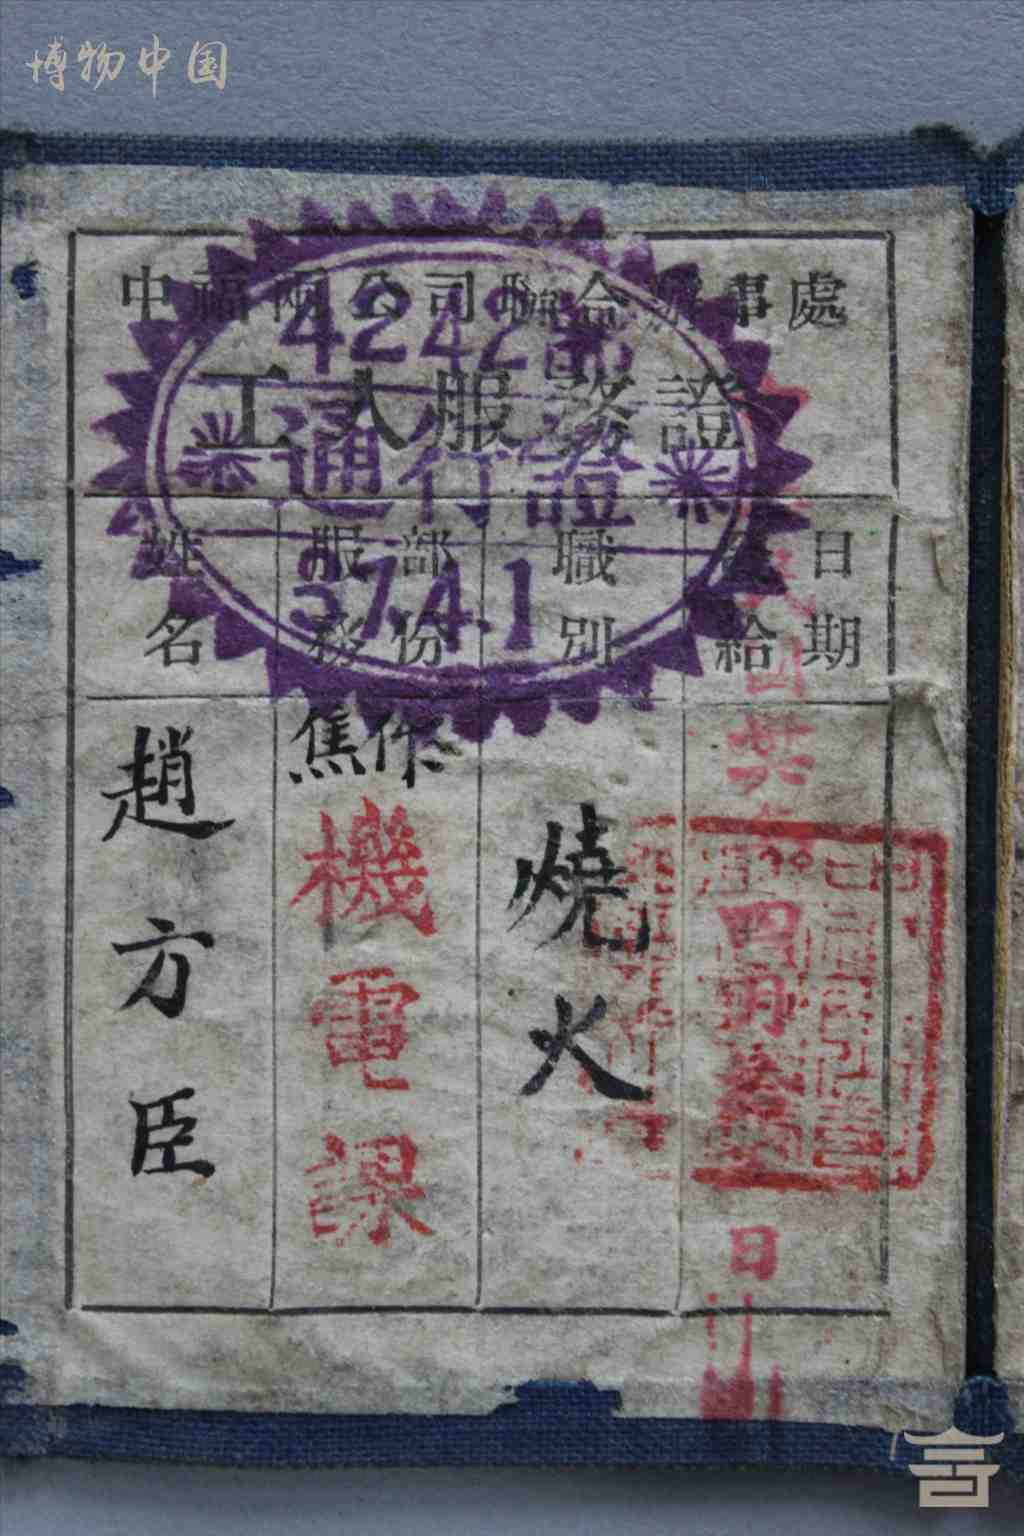 博物中国
中福兩公司聯合辦事處
工人服務證
4242部
通行證
37.4.1
姓名
服務部份
職別
發給日期
趙方臣
焦作
機電課
燒火
民國
四月
日